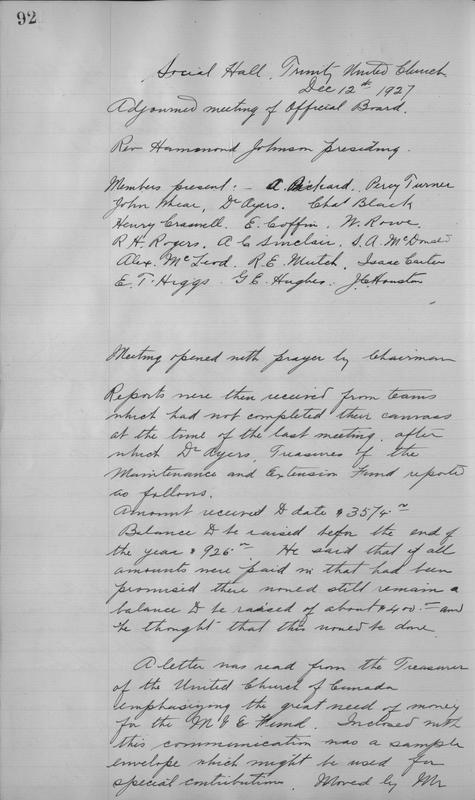 92
Social Hall, Trinity United Church
Dec 12th 1927
Adjourned meeting of Official Board.
Rev Hammond Johnson presiding.
Members present:- A. Pickard, Percy Turner
John Whear, Dr Ayers. Chat Black
Henry Craswell. E. Coffin, W. Rowe,
R H. Rogers, A C Sinclair, S. A. McDonald
Alex. McLeod. R. E. Mutch, Isaac Carter
E. T. Higgs G E. Hughes. J C Houston
Meeting opened with prayer by Chairman
Reports were then received from teams
which had not completed their canvass
at the time of the last meeting, after
which Dr Ayers, Treasurer of the
Maintenance and Extension Fund reported
as follows.
Amount received to date $3574
Balance to be raised before the end of
the year $926. He said that if all
amounts were paid in that had been
promised there would still remain a
balance to be raised of about $400.- and
he thought that this would be done.
A letter was read from the Treasurer
of the United Church of Canada
emphasizong the great need of money
for the M & E Fund. Inclosed with
this communication was a sample
envelope which might be used for
special contributions. Moved by Mr